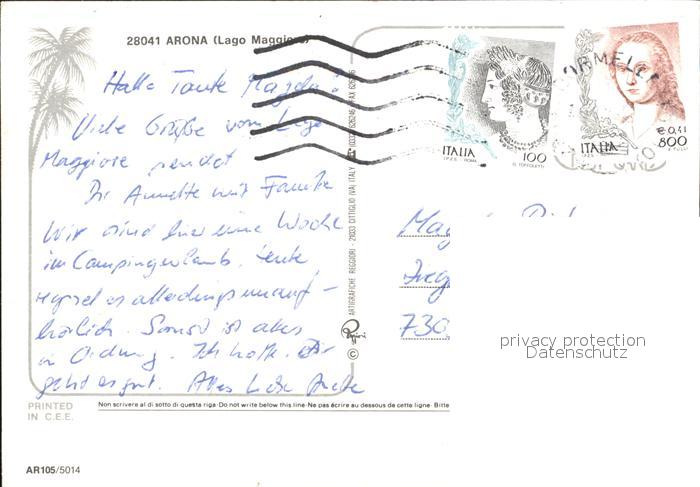 28041 ARONA (Lago Maggiore)
Hallo Tante Magda!
Viele Grüße vom Lago
Maggiore sendet
Dir Annette mit Familie
Wir sind hier eine Woche
im Campingurlaub. Heute
regnet es allerdings unauf-
hörlich. Sonst ist alles
in Ordnung. Ich hoffe, Dir
geht es gut. Alles Liebe
ARTIGRAFICHE REGGIORI - 21033 CITTIGLIO (VA) ITALY
©
ITALIA
100
I.P.Z.S. ROMA
ITALIA
€ 0,41
800
Mag
730
privacy protection
Datenschutz
PRINTED
IN C.E.E.
Non scrivere al di sotto di questa riga-Do not write below this line-Ne pas écrire au dessous de cette ligne- Bitte
AR105/5014